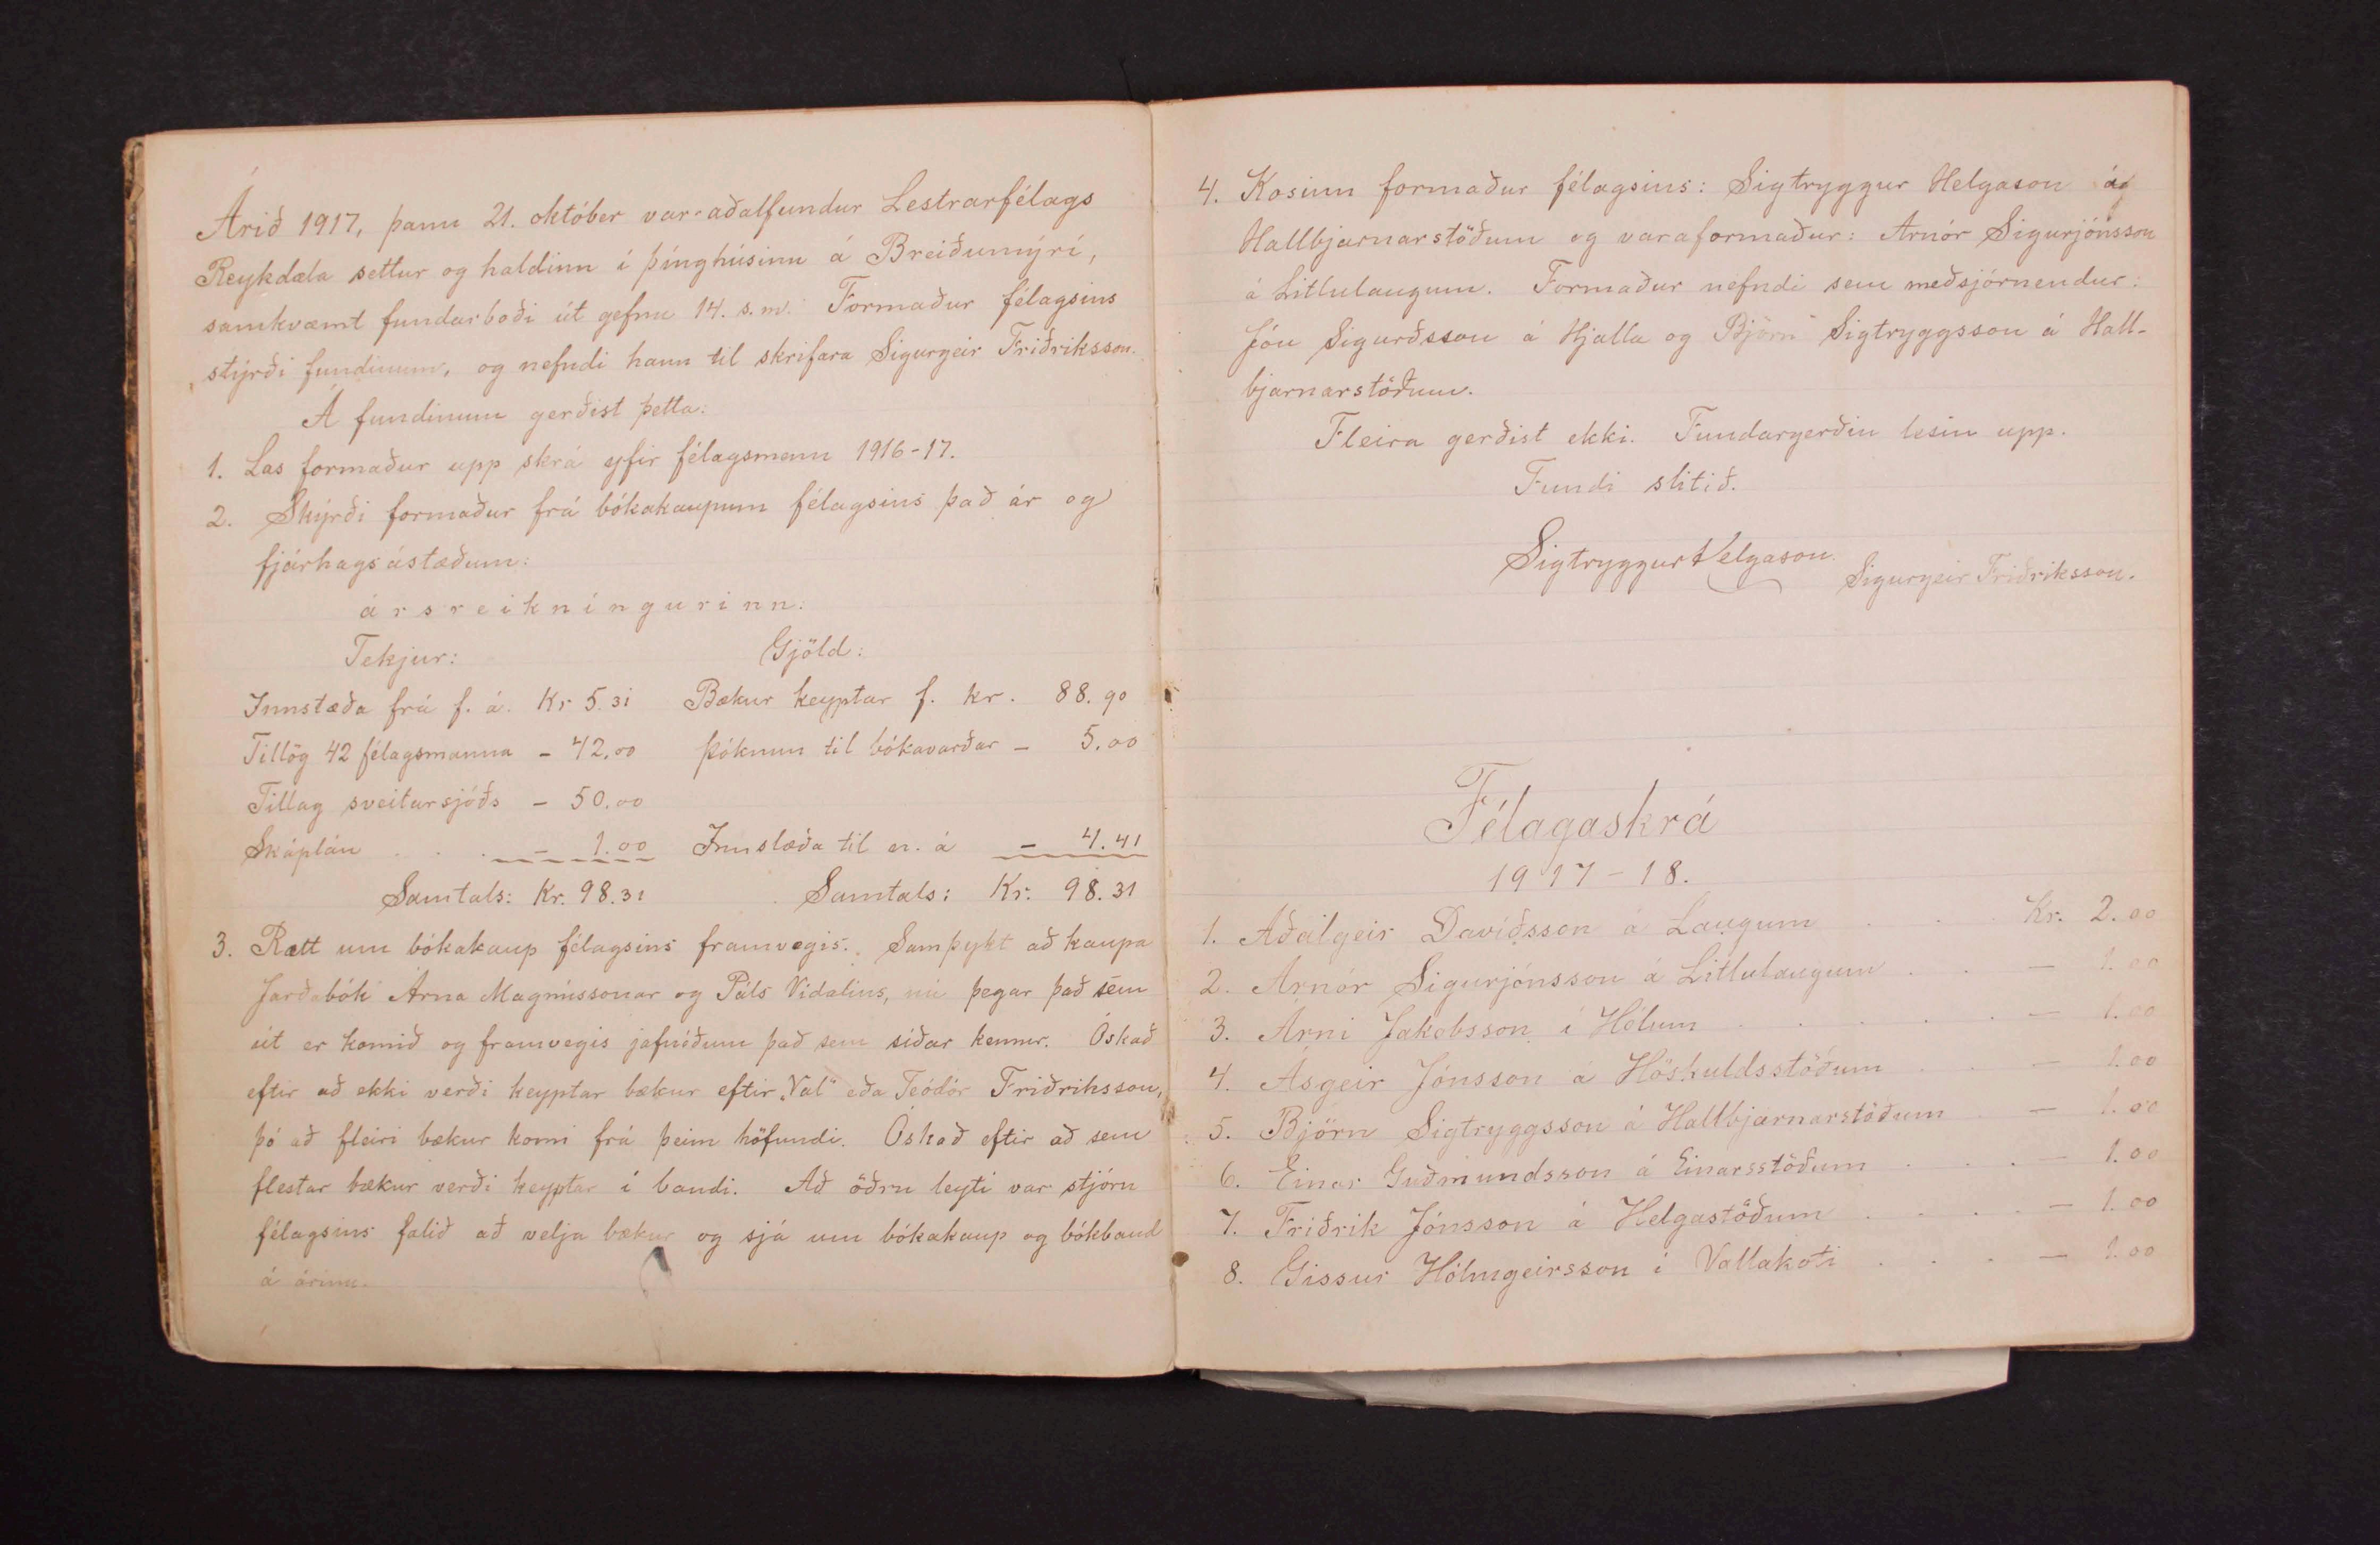 Árið 1917, þann 21. október var aðalfundur Lestrarfélags
Reykdæla settur og haldinn í þinghúsinu á Breiðumýri,
samkvæmt fundarboði út gefnu 14. s.m. Formaður félagsins
stýrði fundinum, og nefndi hann til skrifara Sigurgeir Friðriksson.
Á fundinum gerðist þetta:
1. Las formaður upp skrá yfir félagsmenn 1916-17.
2. Skýrði formaður frá bókakaupum félagsins það ár og
fjárhagsástæðum:
ársreikníngurinn:
Tekjur: Gjöld:
Innstæða frá f. á. Kr 5.31 Bækur keyptar f. kr. 88.90
Tillög 42 félagsmanna - 42.00 Þóknun til bókavarðar - 5.00
Tillag sveitarsjóðs - 50.00
Skáplán . . . - 1.00 Innstæða til n. á - 4.41
Samtals: Kr. 98.31 Samtals: Kr. 98.31
3. Rætt um bókakaup félagsins framvegis. Samþykt að kaupa
Jarðabók Árna Magnússonar og Páls Vídalíns, nú þegar það sem
út er komið og framvegis jafnóðum það sem síðar kemur. Óskað
eftir að ekki verði keyptar bækur eftir „Val" eða Teódór Friðriksson,
þó að fleiri bækur komi frá þeim höfundi. Óskað eftir að sem
flestar bækur verði keyptar í bandi. Að öðru leyti var stjórn
félagsins falið að velja bækur og sjá um bókakaup og bókband
á árinu.
4. Kosinn formaður félagsins: Sigtryggur Helgason á
Hallbjarnarstöðum og varaformaður: Arnór Sigurjónsson
á Litlulaugum. Formaður nefndi sem meðsjórnendur:
Jón Sigurðsson á Hjalla og Björn Sigtryggsson á Hall-
bjarnarstöðum.
Fleira gerðist ekki. Fundargerðin lesin upp.
Fundi slitið.
Sigtryggur Helgason.
Sigurgeir Friðriksson.
Félagaskrá
1917-18.
1. Aðalgeir Davíðsson á Laugum . . Kr. 2.00
2. Arnór Sigurjónsson á Litlulaugum . . - 1.00
3. Árni Jakobsson í Hólum . . . . . - 1.00
4. Ásgeir Jónsson á Höskuldsstöðum . . - 1.00
5. Björn Sigtryggsson á Hallbjarnarstöðum . - 1.00
6. Einar Guðmundsson á Einarsstöðum . . . - 1.00
7. Friðrik Jónsson á Helgastöðum . . . . - 1.00
8. Gissur Hólmgeirsson í Vallakoti . . . - 1.00